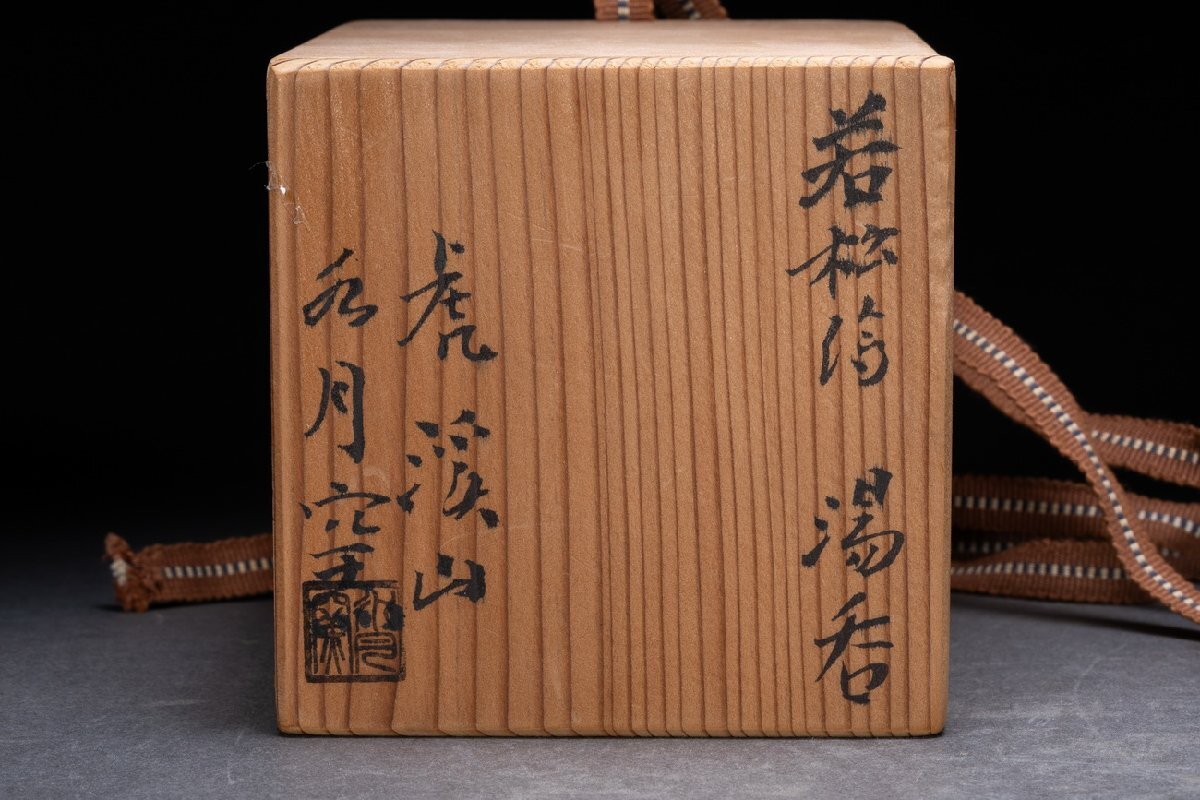 若松絵 湯呑
虎渓山
水月窯